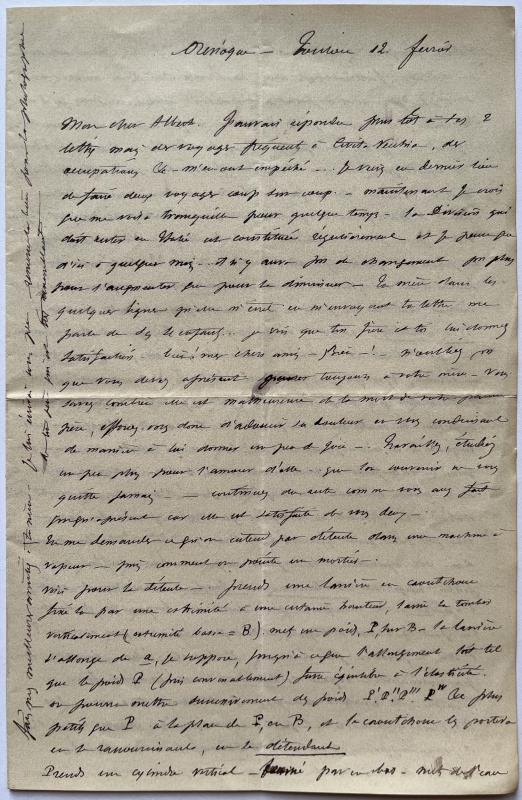 Orénoque – Toulon 12 février
Mon cher Albert. J'aurais répondu plus tôt à tes 2
lettres mais des voyages fréquents à Civita-Vecchia, des
occupations &c – m'en ont empêché – Je viens en dernier lieu
de faire deux voyages coup sur coup – maintenant je crois
que me voilà tranquille pour quelque temps – la Division qui
doit rester en Italie est constituée régulièrement et je pense que
d'ici à quelques mois il n'y aura pas de changement pas plus
pour l'augmenter que pour la diminuer – Ta mère dans les
quelques lignes qu'elle m'écrit en m'envoyant ta lettre me
parle de ses enfants. je vois que ton frère et toi lui donnez
satisfaction. bien! mes chers amis – bien! – n'oubliez pas
que vous devez à présent penser toujours à votre mère – Vous
savez combien elle est malheureuse de la mort de votre pauvre
père, efforcez-vous donc d'adoucir sa douleur en vous conduisant
de manière à lui donner un peu de joie – Travaillez, étudiez
un peu plus pour l'amour d'elle – que son souvenir ne vous
quitte jamais – continuez du reste comme vous avez fait
jusqu'à présent car elle est satisfaite de vous deux –
Tu me demandes ce qu'on entend par détente dans une machine à
vapeur – puis comment on pointe un mortier –
Voici pour la détente – prends une lanière en caoutchouc
fixe la par une extrémité à une certaine hauteur, laisse la tomber
verticalement (extrémité basse = B). mets un poids P sur B – la lanière
s'allonge de a, je suppose, jusqu'à ce que l'allongement soit tel
que le poids P (pris convenablement) fasse équilibre à l'élasticité.
on pourra mettre successivement des poids P' P'' P''' P'''' &c plus
petits que P à la place de P, en B, et le caoutchouc les portera
en se raccourcissant, en se détendant
Prends un cylindre vertical – fermé par en bas – mets de l'eau
fais mes meilleures amitiés à ta mère – je lui écrirai sous peu – remercie la bien pour la photographie